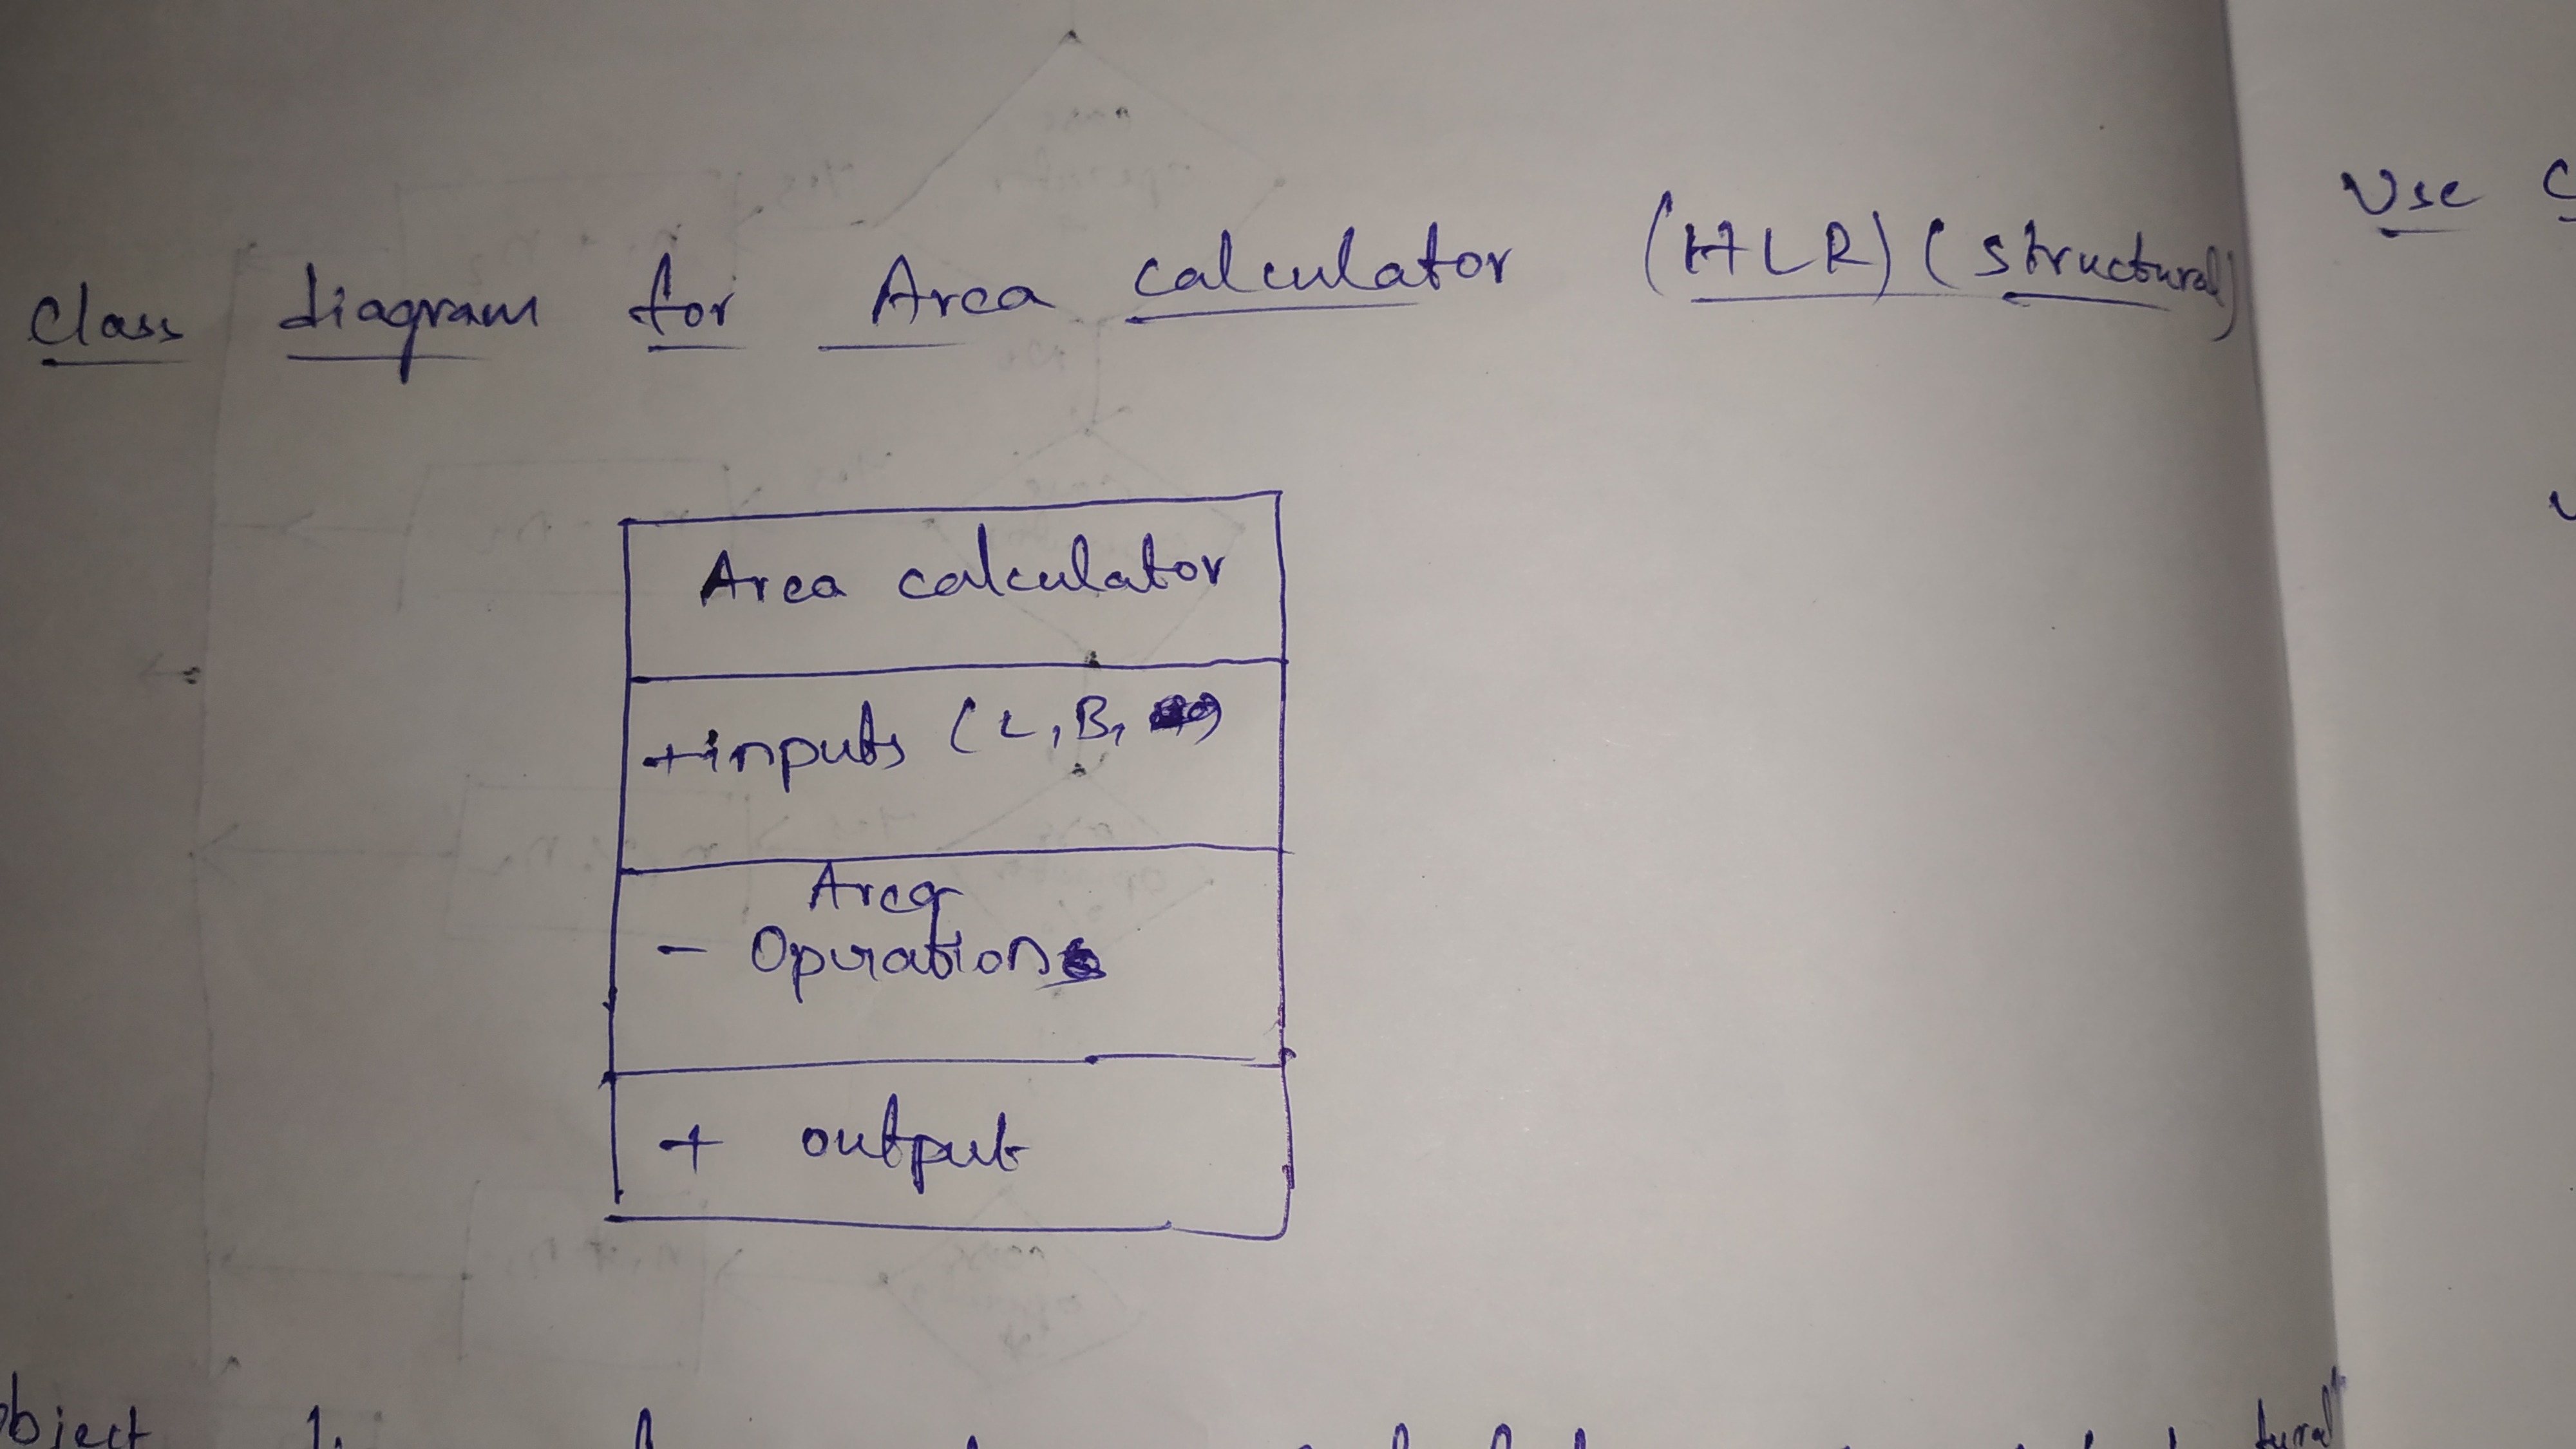 Class diagram for Area calculator (HLR) (Structural)
Area calculator
+ inputs (L, B,)
Area
- Operation
+ output
Use
object